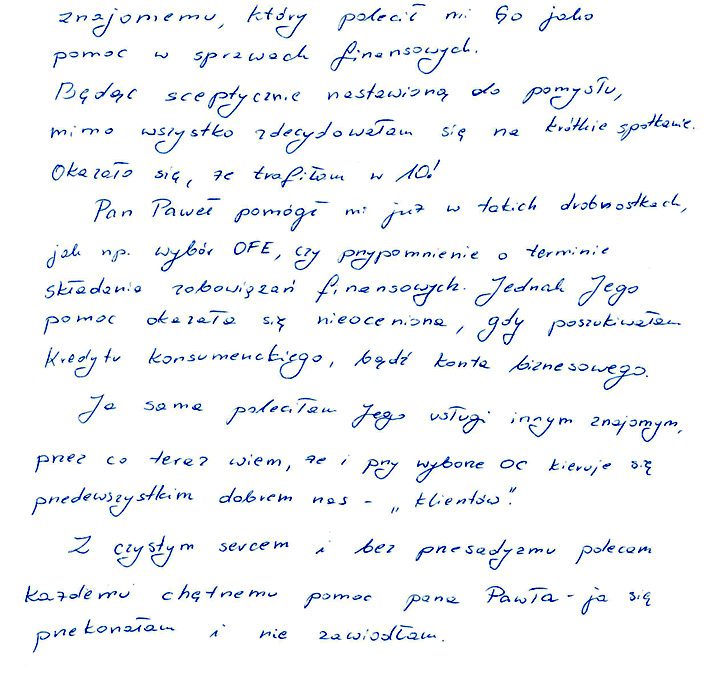 znajomemu, który polecił mi Go jako
pomoc w sprawach finansowych.
Będąc sceptycznie nastawioną do pomysłu,
mimo wszystko zdecydowałam się na krótkie spotkanie.
Okazało się, że trafiłam w 10!
Pan Paweł pomógł mi już w takich drobnostkach,
jak np. wybór OFE, czy przypomnienie o terminie
składania zobowiązań finansowych. Jednak Jego
pomoc okazała się nieoceniona, gdy poszukiwałam
kredytu konsumenckiego, bądź konta biznesowego.
Ja sama poleciłam Jego usługi innym znajomym,
przez co teraz wiem, że i przy wyborze OC kieruje się
przedewszystkim dobrem nas - „klientów".
Z czystym sercem i bez przesadyzmu polecam
każdemu chętnemu pomoc pana Pawła - ja się
przekonałam i nie zawiodłam.